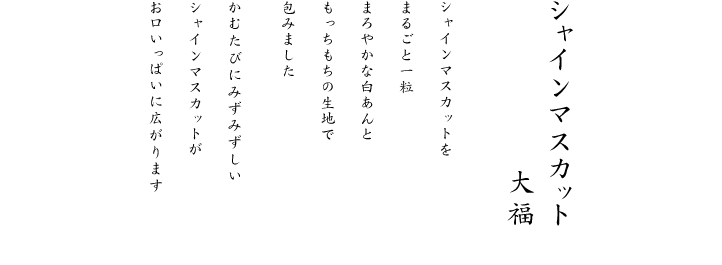 シャインマスカット
大福
シャインマスカットを
まるごと一粒
まろやかな白あんと
もっちもちの生地で
包みました
かむたびにみずみずしい
シャインマスカットが
お口いっぱいに広がります